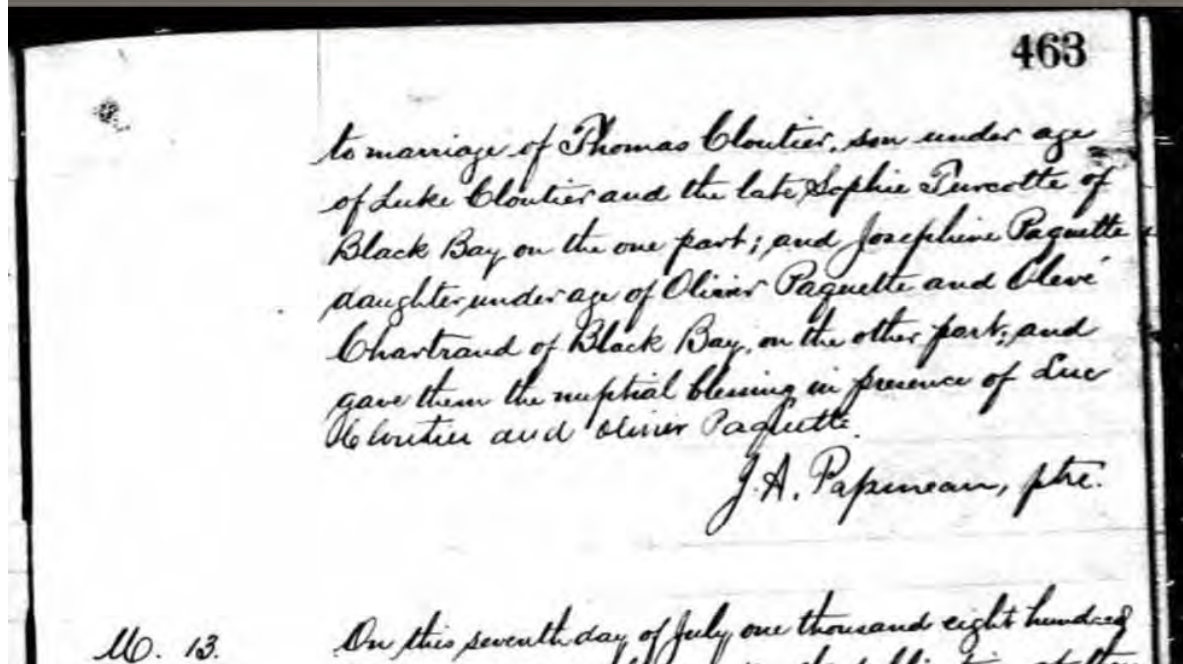 463
to marriage of Thomas Cloutier, son under age
of Luke Cloutier and the late Sophie Turcotte of
Black Bay on the one part; and Josephine Paquette
daughter under age of Olivier Paquette and Olevé
Chartrand of Black Bay, on the other part; and
gave them the nuptial blessing in presence of Luc
Cloutier and Olivier Paquette.
J. A. Papineau, ptre.
M. 13.
On this seventh day of July one thousand eight hundred